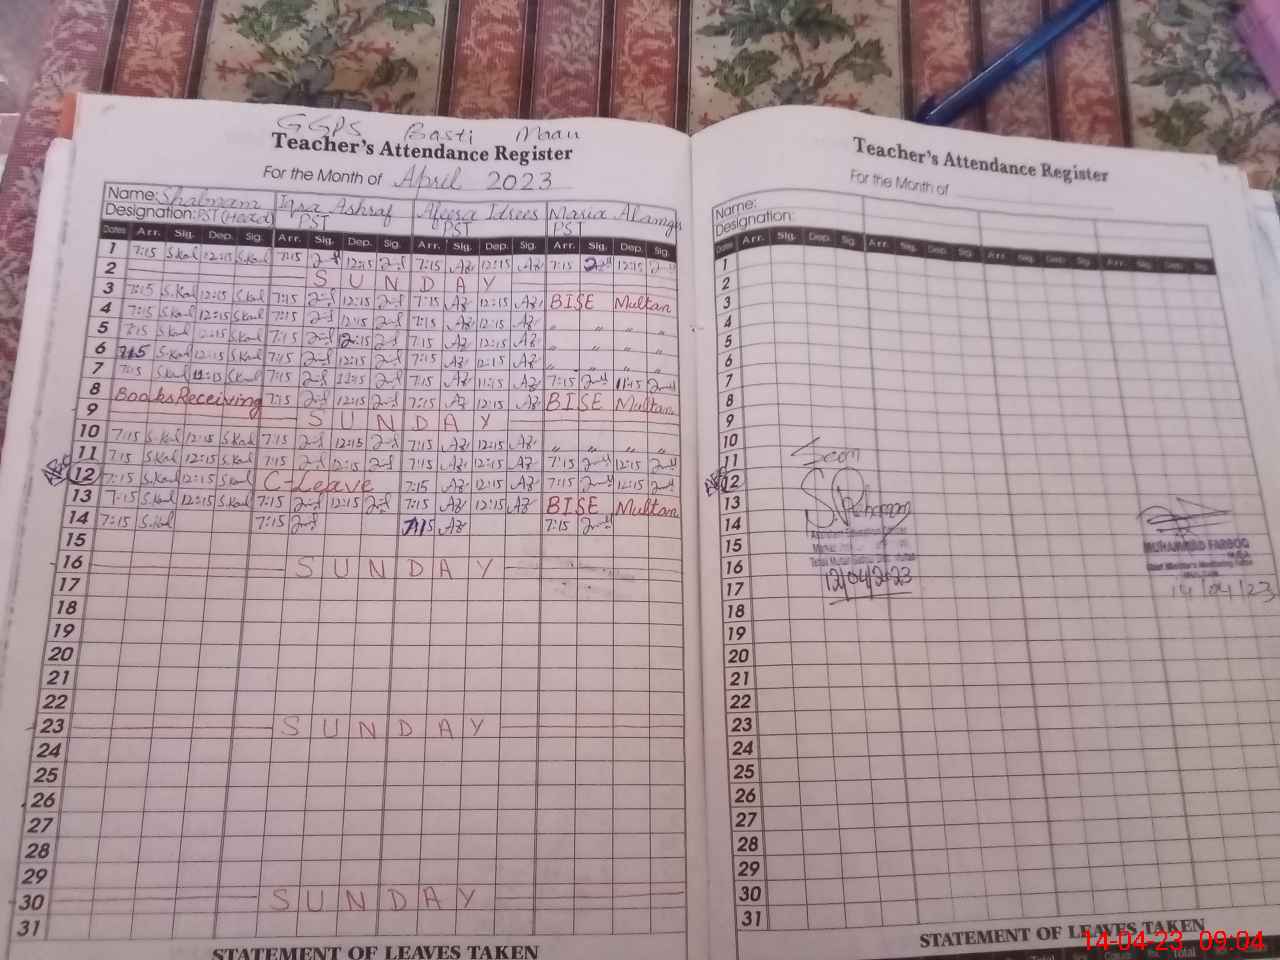 GGPS Basti Maan
Teacher's Attendance Register
For the Month of April 2023
Name: Shabnam Iqra Ashraf Afeera Idrees Maria Alamgir
Designation: PST (Head) PST PST PST
Dates Arr. Sig. Dep. Sig. Arr. Sig. Dep. Sig. Arr. Sig. Dep. Sig. Arr. Sig. Dep. Sig.
1 7:15 S.Kal 12:15 S.Kal 7:15 12:15 7:15 Az 12:15 Az 7:15 12:15
2 SUNDAY
3 7:15 S.Kal 12:15 S.Kal 7:15 12:15 7:15 Az 12:15 Az BISE Multan
4 7:15 S.Kal 12:15 S.Kal 7:15 12:15 7:15 Az 12:15 Az " " " "
5 7:15 S.Kal 12:15 S.Kal 7:15 12:15 7:15 Az 12:15 Az " " " "
6 7:15 S.Kal 12:15 S.Kal 7:15 12:15 7:15 Az 12:15 Az " " " "
7 7:15 S.Kal 11:15 S.Kal 7:15 11:15 7:15 Az 11:15 Az 7:15 11:15
8 Books Receiving 7:15 12:15 7:15 Az 12:15 Az BISE Multan
9 SUNDAY
10 7:15 S.Kal 12:15 S.Kal 7:15 12:15 7:15 Az 12:15 Az " " " "
11 7:15 S.Kal 12:15 S.Kal 7:15 12:15 7:15 Az 12:15 Az 7:15 12:15
12 7:15 S.Kal 12:15 S.Kal C-Leave 7:15 Az 12:15 Az 7:15 12:15
13 7:15 S.Kal 12:15 S.Kal 7:15 12:15 7:15 Az 12:15 Az BISE Multan
14 7:15 S.Kal 7:15 7:15 Az 7:15
15
16 SUNDAY
17
18
19
20
21
22
23 SUNDAY
24
25
26
27
28
29
30 SUNDAY
31
STATEMENT OF LEAVES TAKEN
Teacher's Attendance Register
For the Month of
Name:
Designation:
Dates Arr. Sig. Dep. Sig. Arr. Sig. Dep. Sig. Arr. Sig. Dep. Sig. Arr. Sig. Dep. Sig.
1
2
3
4
5
6
7
8
9
10
11 Seen
12
13
14
15 MUHAMMAD FAROOQ
16
17 12/04/2023 14/04/23
18
19
20
21
22
23
24
25
26
27
28
29
30
31
STATEMENT OF LEAVES TAKEN
14-04-23 09:04